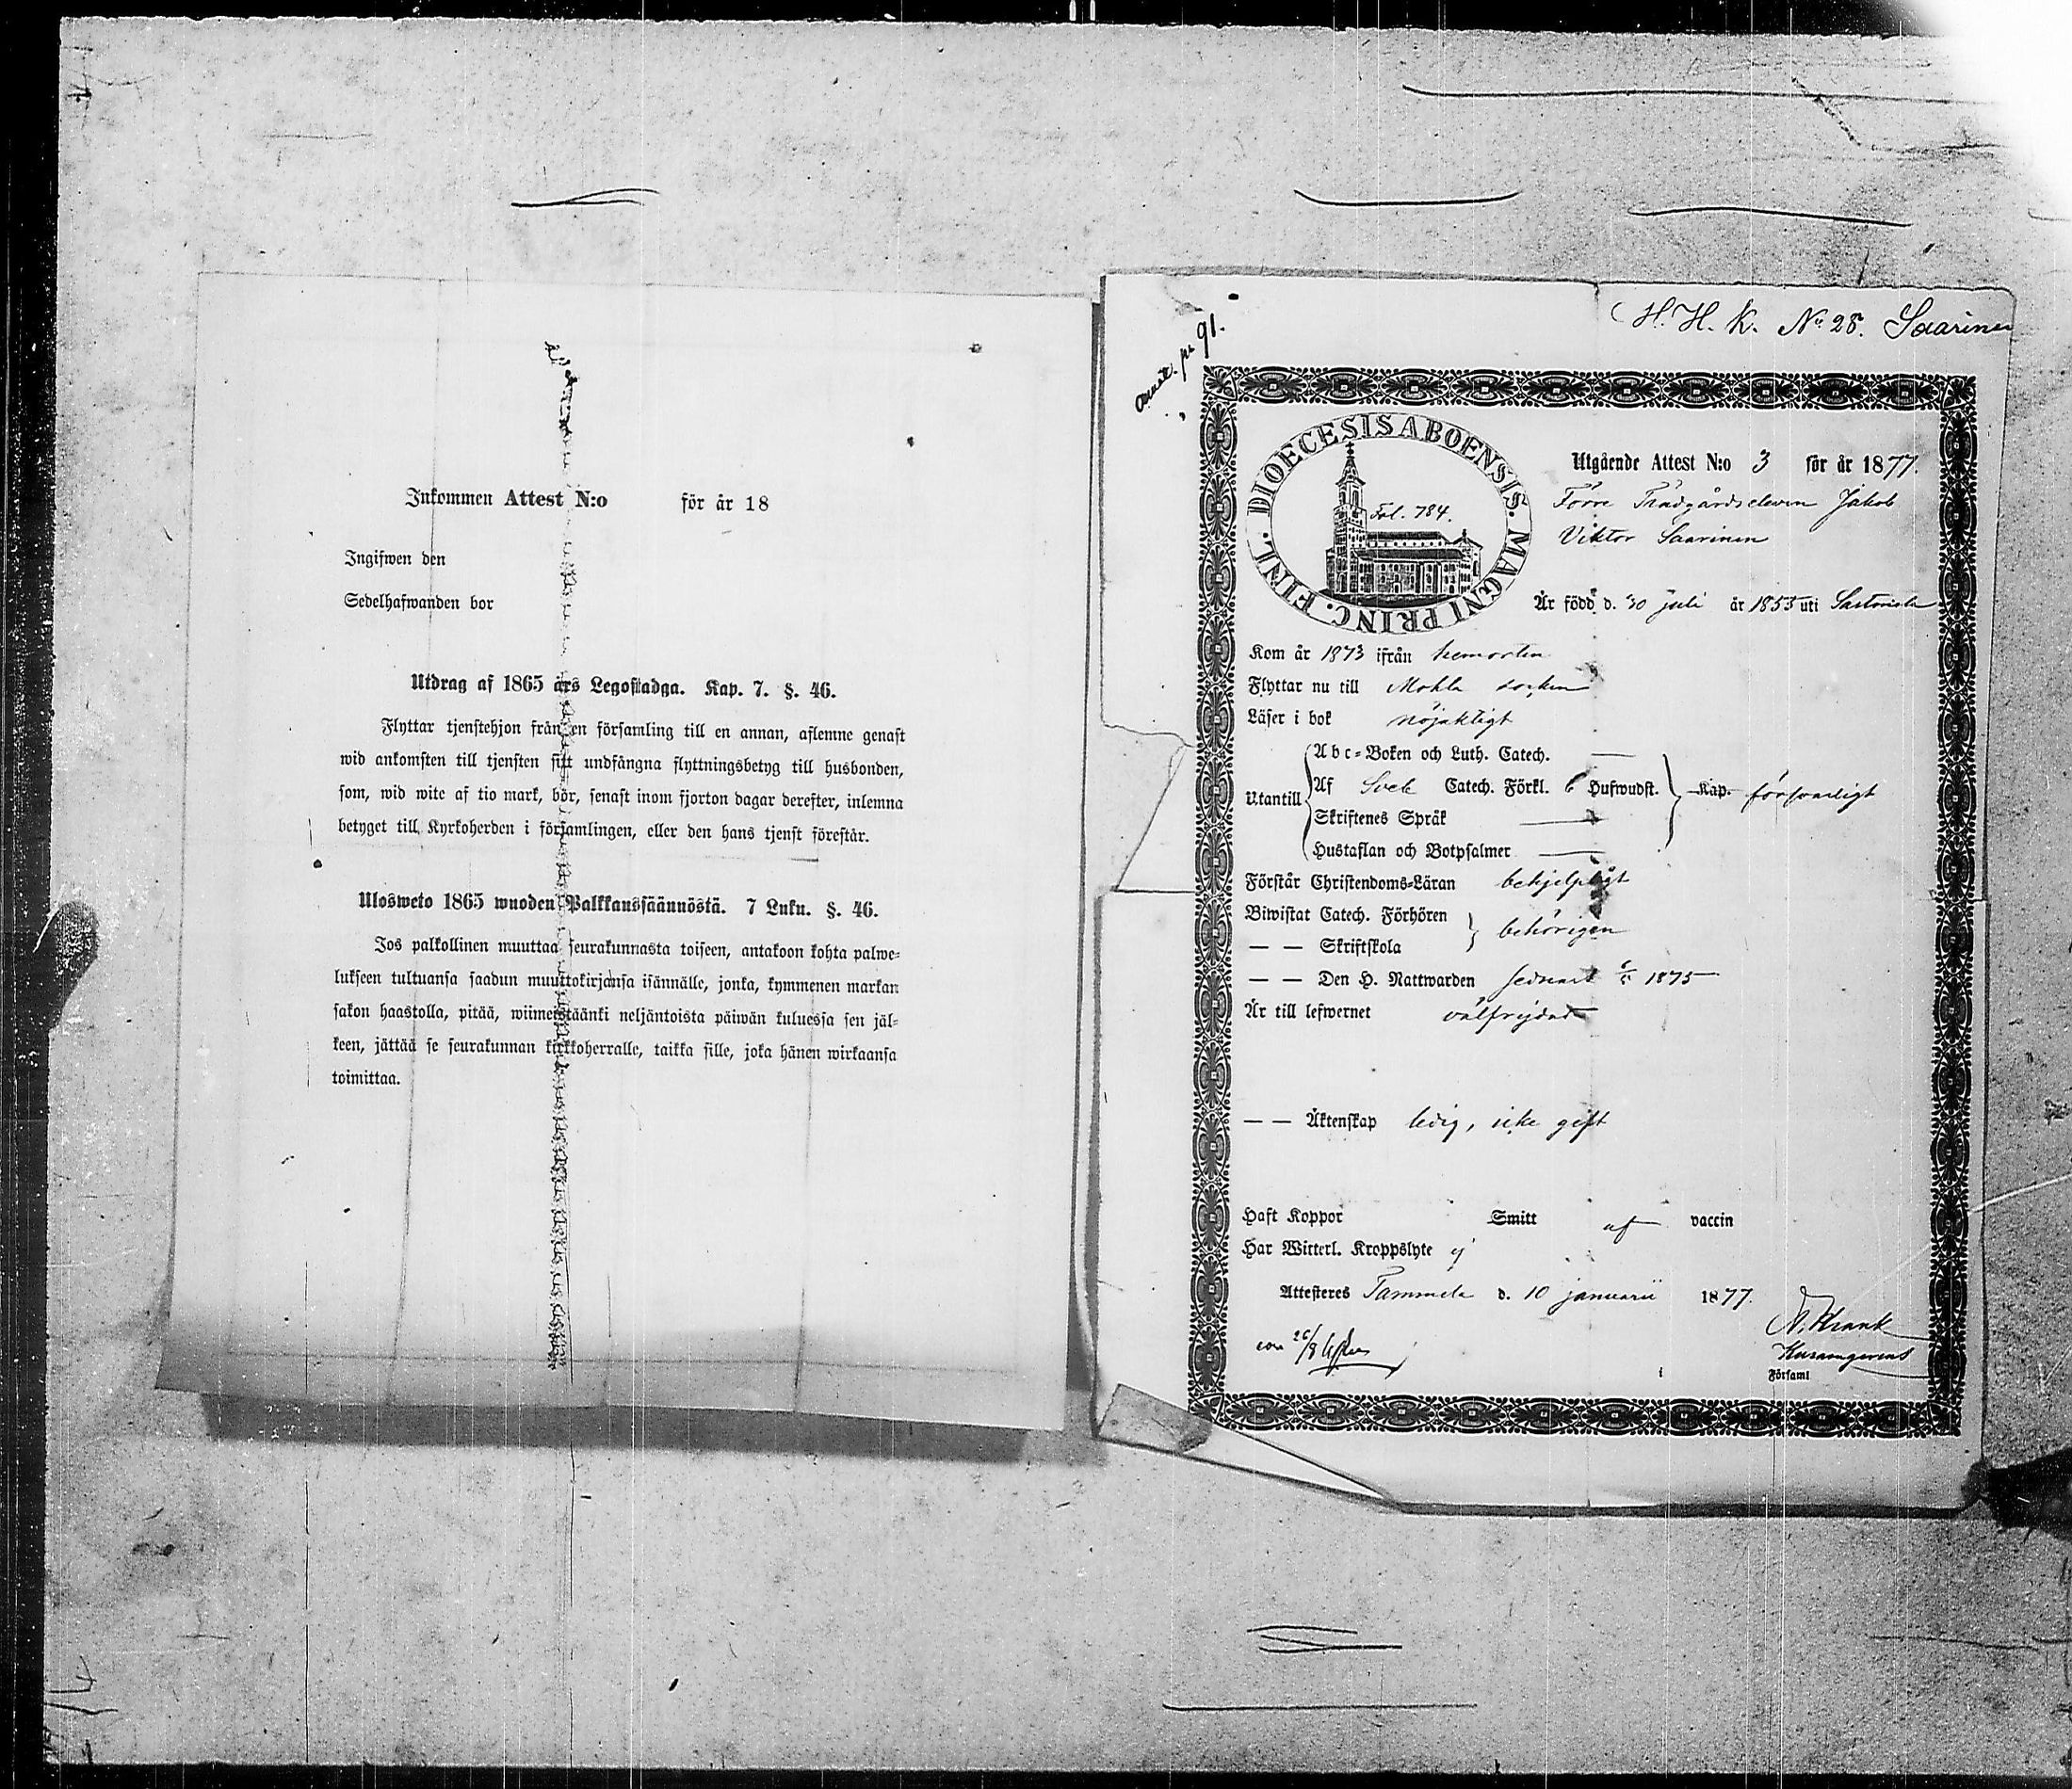 Inkommen Attest N:o för år 18
Ingifwen den
Sedelhafwanden bor
Utdrag af 1865 års Legostadga. Kap. 7. §. 46.
Flyttar tjenstehjon från en församling till en annan, aflemne genast
wid ankomsten till tjensten sitt undfångna flyttningsbetyg till husbonden,
som, wid wite af tio mark, bör, senast inom fjorton dagar derefter, inlemna
betyget till Kyrkoherden i församlingen, eller den hans tjenst förestår.
Ulosweto 1865 wuoden Palkkaussäännöstä. 7 Luku. §. 46.
Jos palkollinen muuttaa seurakunnasta toiseen, antakoon kohta palwe-
lukseen tultuansa saadun muuttokirjansa isännälle, jonka, kymmenen markan
sakon haastolla, pitää, wiimeistäänki neljäntoista päiwän kuluessa sen jäl-
keen, jättää se seurakunnan kirkkoherralle, taikka sille, joka hänen wirkaansa
toimittaa.
H. H. K. No 28. Saarinen
91.
DIOECESIS ABOENSIS. MAGNI PRINC. FINL.
Fol. 784.
Utgående Attest N:o 3 för år 1877.
Förre Trädgårdseleven Jakob
Viktor Saarinen
Är född d. 30 juli år 1855 uti
Kom år 1873 ifrån hemorten
Flyttar nu till Mohla socken
Läser i bok nöjaktigt
Utantill
Abc-Boken och Luth. Catech. —
Af Sveb Catech. Förkl. 6 Hufwudst. Kap. försvarligt
Skriftenes Språk —
Hustaflan och Botpsalmer —
Förstår Christendoms-Läran behjelpligt
Biwistat Catech. Förhören
— — Skriftskola behörigen
— — Den H. Nattwarden senast 1875
Är till lefwernet välfrejdad
— — Äktenskap ledig, icke gift
Haft Koppor Smitt af vaccin
Har Witterl. Kroppslyte ej
Attesteras Tammela d. 10 januarii 1877.
26/8
Församl